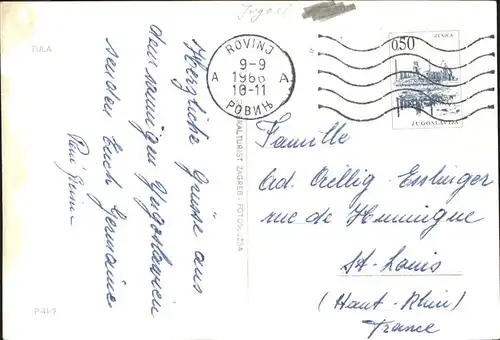 Jugosl.
PULA
Herzliche Grüsse aus
dem sonnigen Jugoslawien
senden Euch Germaine
ROVINJ
A 9-9 A
1966
10-11
РОВИЊ
ZENICA
0,50
JUGOSLAVIJA
TURIST ZAGREB - FOTO
Familie
Ad. Oellig-Esslinger
rue de Huningue
St-Louis
(Haut-Rhin)
France
P-41/9